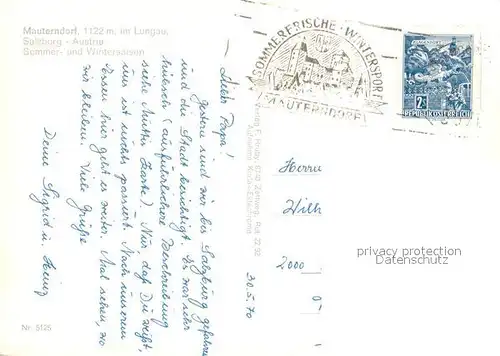 Mauterndorf, 1122 m, im Lungau,
Salzburg - Austria
Sommer- und Wintersaison
SOMMERFRISCHE · WINTERSPORT
MAUTERNDORF
2S
REPUBLIK ÖSTERREICH
30.5.70
Lieber Papa!
Gestern sind wir bis Salzburg gefahren
und die Stadt besichtigt. Es war sehr
hübsch (ausführlichere Beschreibung
siehe Muttis Karte). Nur daß Du weißt,
uns ist nichts passiert. Nach unserem
Essen hier geht es weiter. Mal sehen, wo
wir bleiben. Viele Grüße
Deine Sigrid u. Heinz
Herrn
Wilh
2000
privacy protection
Datenschutz
Nr. 5125